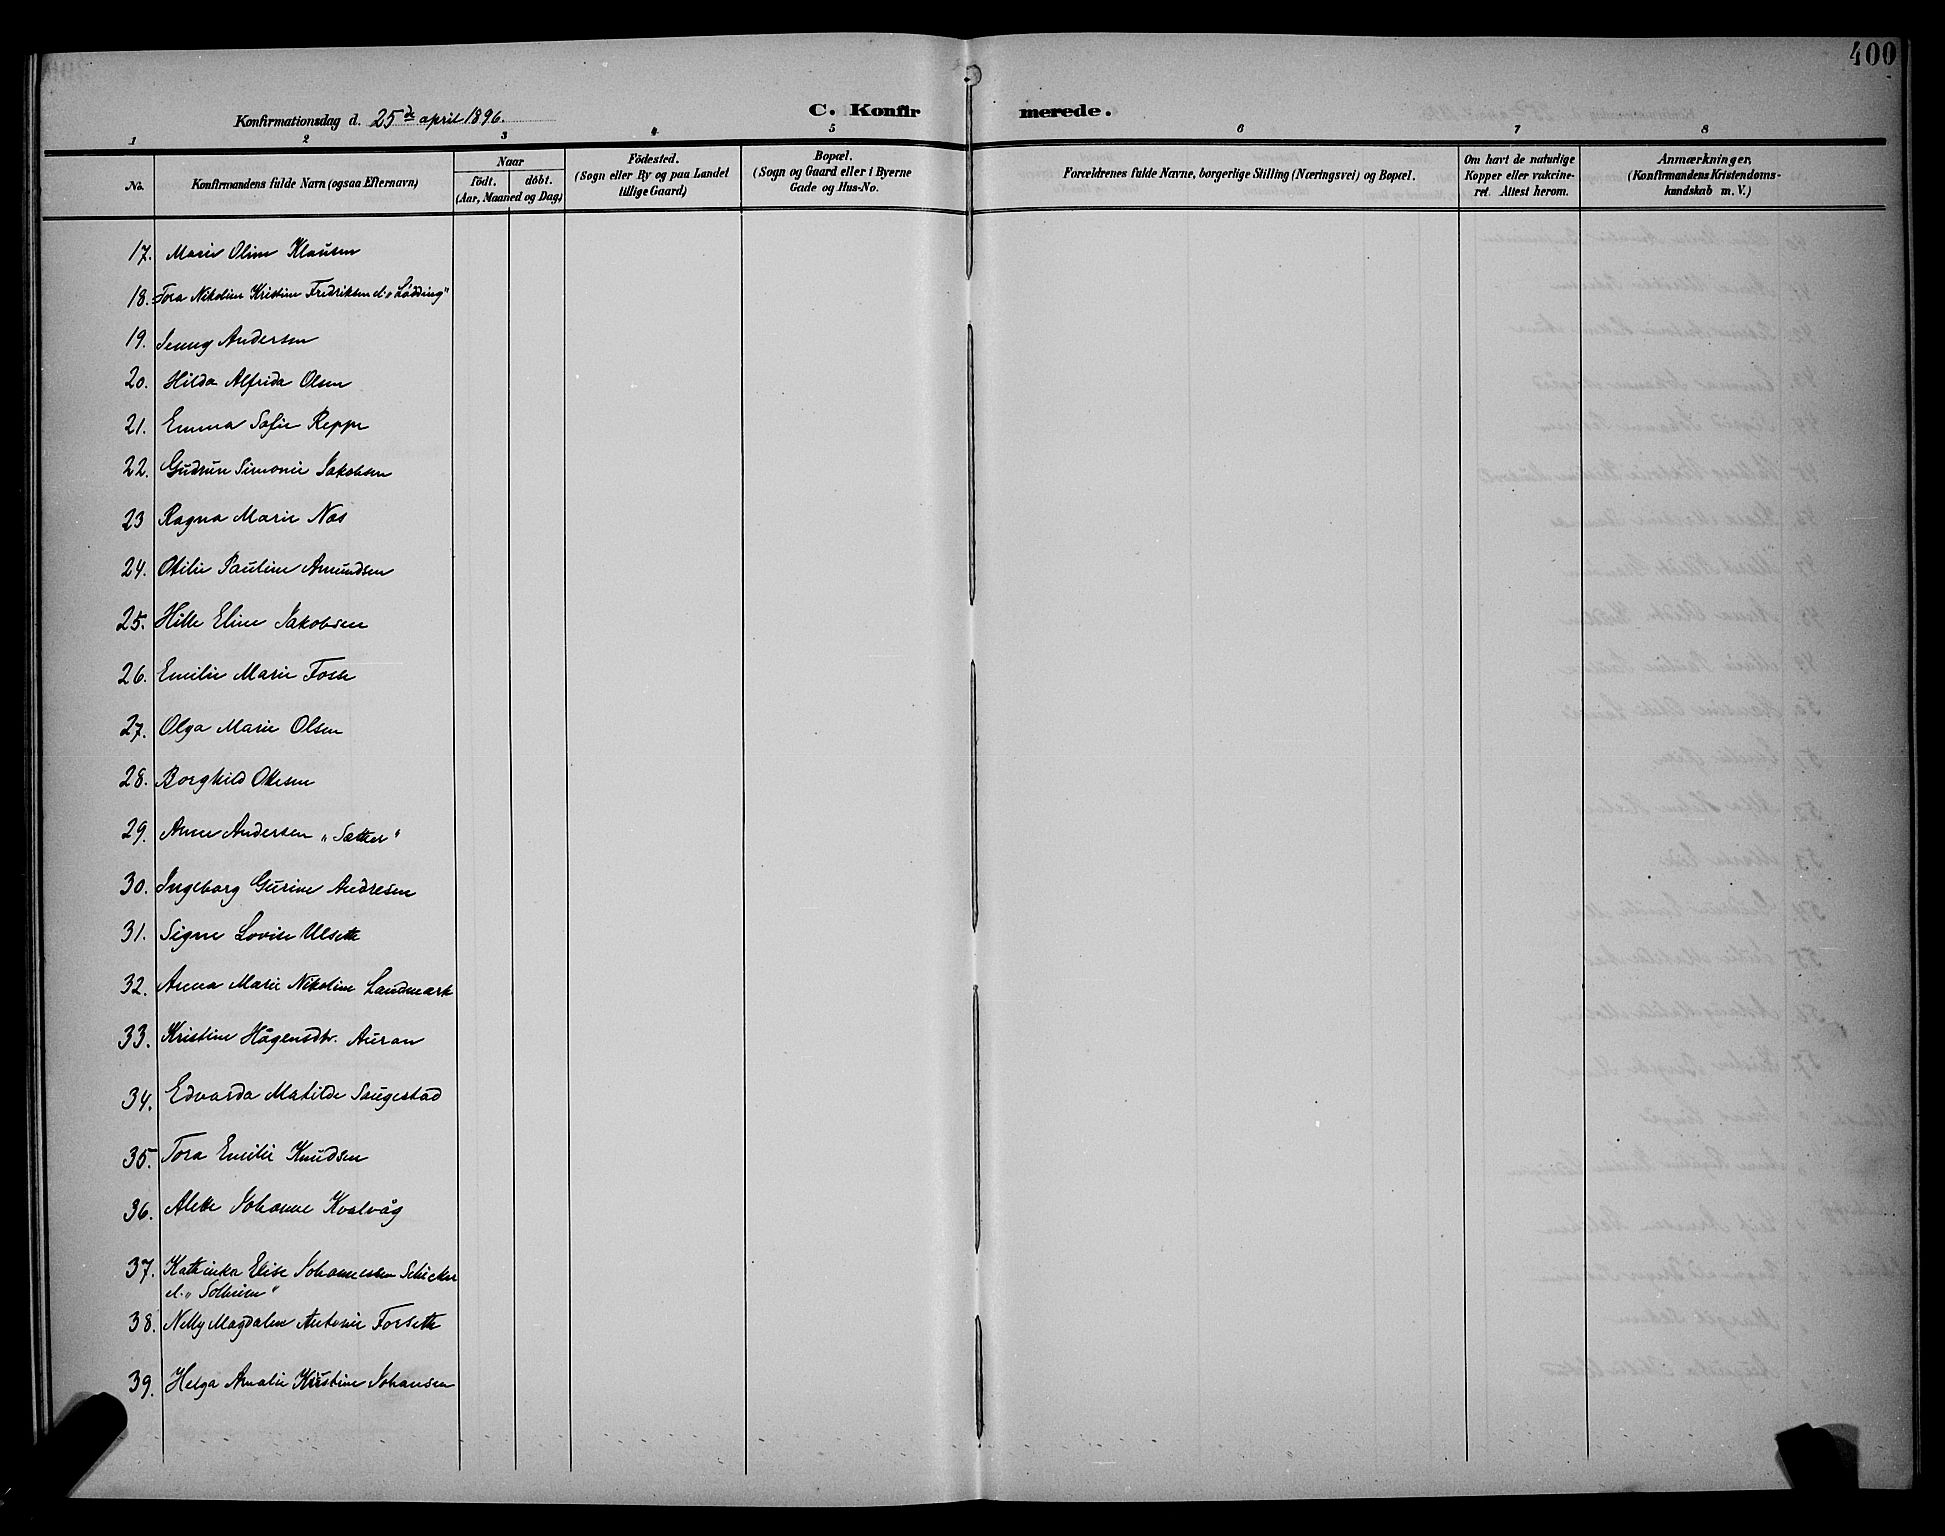 400
Konfirmationsdag d. 25de april 1896.
C. Konfirmerede.
1 2 3 4 5 6 7 8
No. Konfirmandens fulde Navn (ogsaa Efternavn)
Naar
födt. döbt.
(Aar, Maaned og Dag)
Födested.
(Sogn eller By og paa Landet
tillige Gaard)
Bopæl.
(Sogn og Gaard eller i Byerne
Gade og Hus-No.
Forældrenes fulde Navne, borgerlige Stilling (Næringsvei) og Bopæl.
Om havt de naturlige
Kopper eller vakcine-
ret. Attest herom.
Anmærkninger,
(Konfirmandens Kristendoms-
kundskab m. V.)
17. Marie Oline Klausen
18. Tora Nikoline Kristine Fredriksen el. "Lödding"
19. Jenny Andersen
20. Hilda Alfrida Olsen
21. Emma Sofie Reppe
22. Gudrun Simonie Jakobsen
23 Ragna Marie Næs
24. Otilie Pauline Amundsen
25. Hille Eline Jakobsen
26. Emilie Marie Fosse
27. Olga Marie Olsen
28. Borghild Ottesen
29. Anne Andersen "Sætter"
30. Ingeborg Gurine Andresen
31. Signe Lovise Ulseth
32. Anna Marie Nikoline Landmark
33. Kristine Hågensdtr. Auran
34. Edvarda Matilde Saugestad
35. Tora Emilie Knudsen
36. Alette Johanne Kvalvåg
37. Kathinka Elise Johannessen Schicker
el. "Solheim"
38. Nelly Magdalene Antonie Forseth
39. Helga Amalie Kristine Johansen